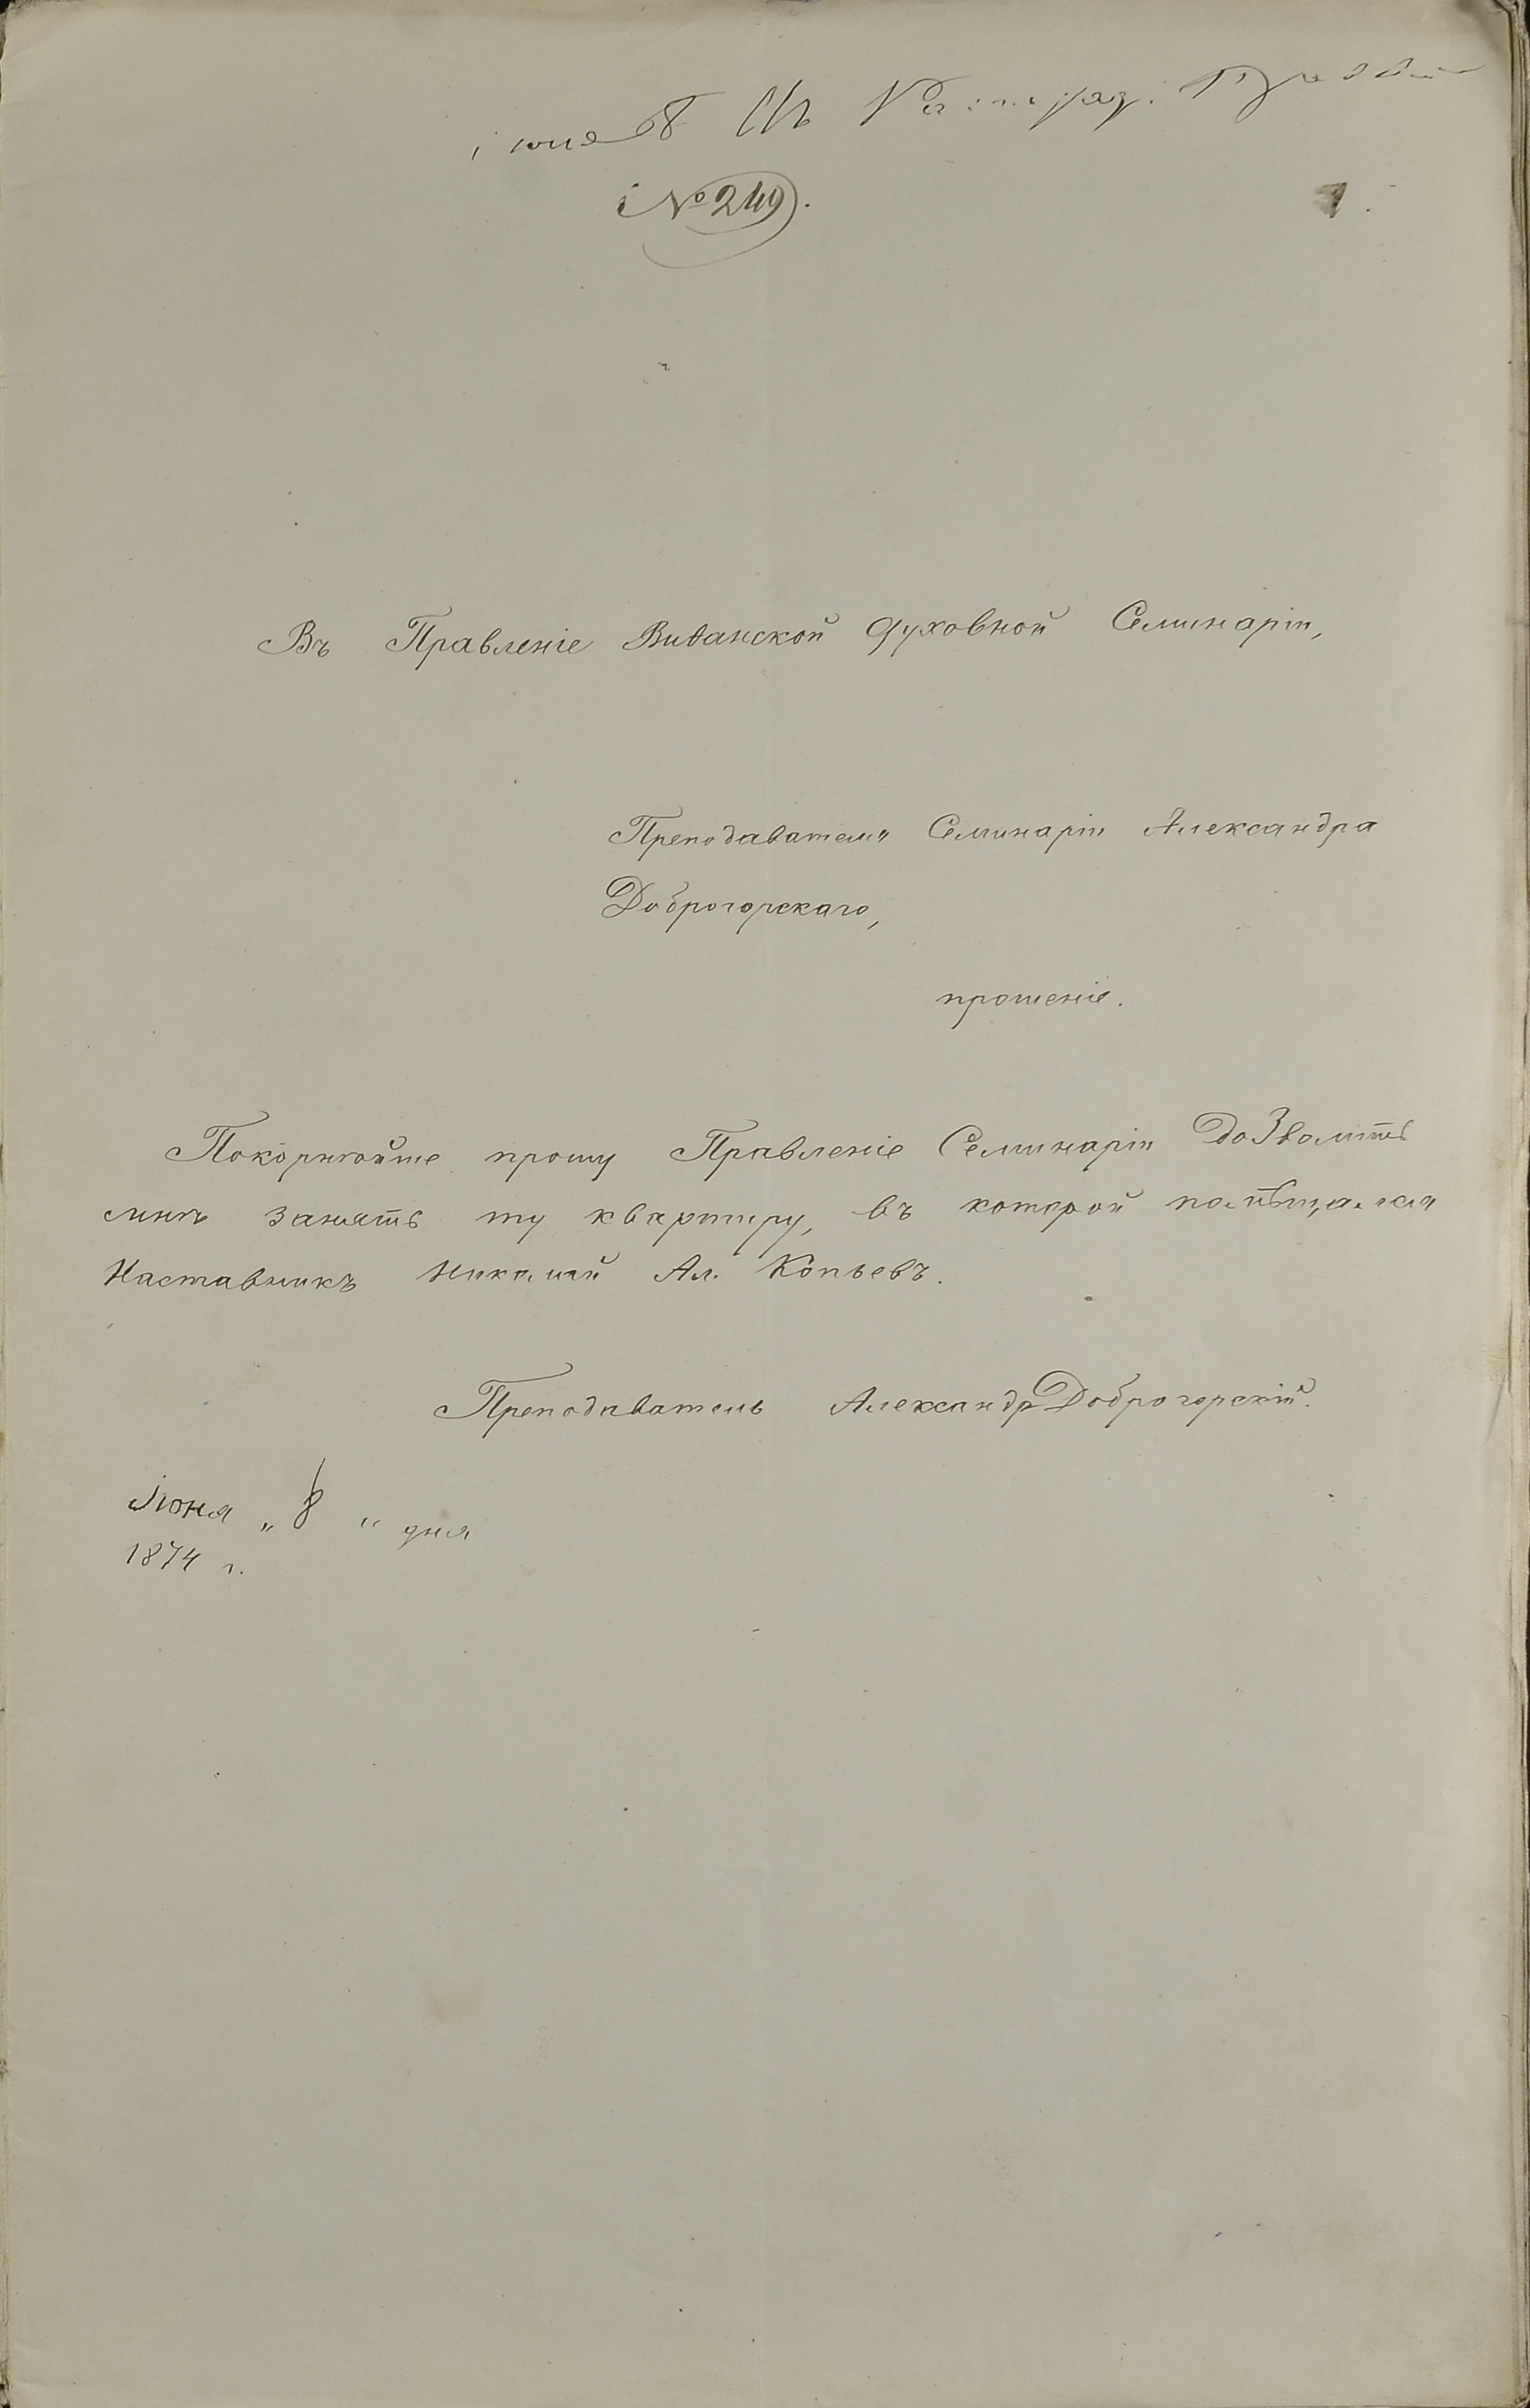 № 249.
1.
Въ Правленіе Виѳанской Духовной Семинаріи,
Преподавателя Семинаріи Александра
Доброгорскаго,
прошеніе.
Покорнѣйше прошу Правленіе Семинаріи дозволить
мнѣ занять ту квартиру, въ которой помѣщался
Наставникъ Николай Ал. Копьевъ.
Преподаватель Александръ Доброгорскій.
Іюня „ 8 “ дня
1874 г.